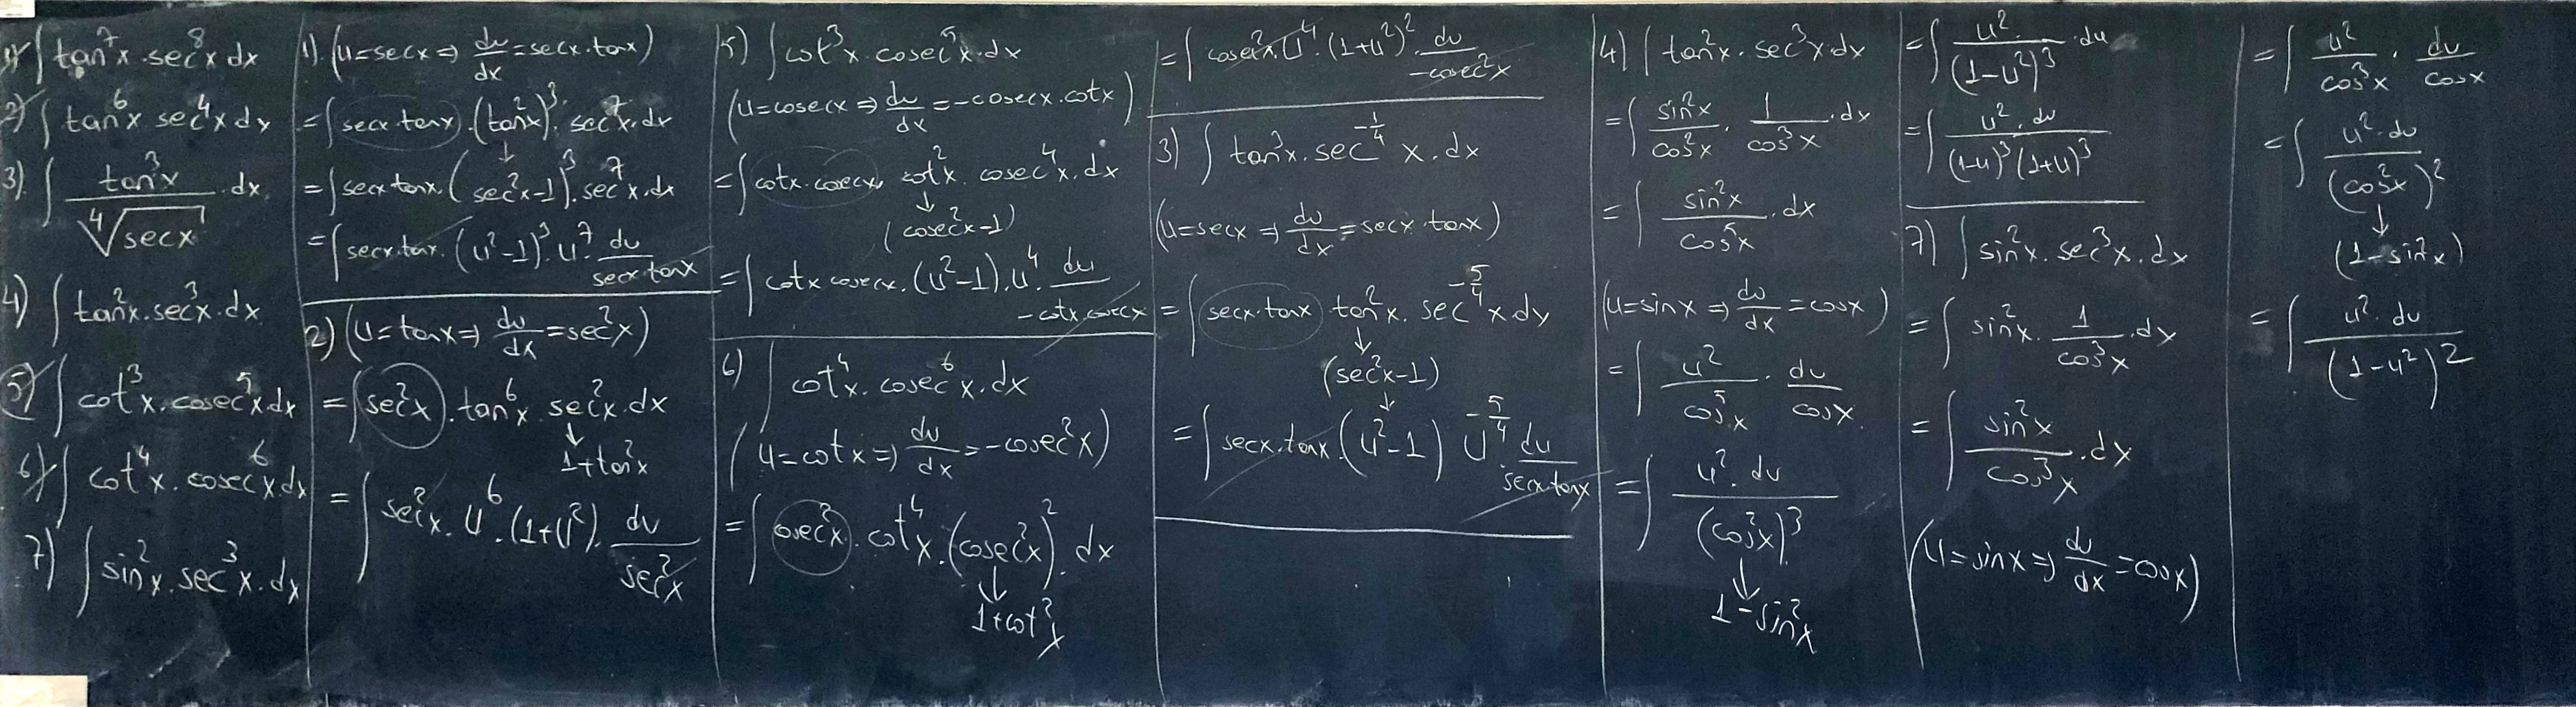 1) ∫ tan⁷x . sec⁸x dx
2) ∫ tan⁶x sec⁴x dx
3) ∫ tan³x / ⁴√secx . dx
4) ∫ tan²x . sec³x . dx
5) ∫ cot³x . cosec⁵x . dx
6) ∫ cot⁴x . cosec⁶x . dx
7) ∫ sin²x . sec³x . dx
1). (u=secx ⇒ du/dx = secx . tanx)
= ∫ (secx . tanx) . (tan²x)³ . sec⁷x . dx
↓
= ∫ secx tanx . (sec²x-1)³ . sec⁷x . dx
= ∫ secx . tanx . (u²-1)³ . u⁷ . du / secx tanx
2) (u=tanx ⇒ du/dx = sec²x)
= ∫ (sec²x) . tan⁶x . sec²x . dx
↓
1+tan²x
= ∫ sec²x . u⁶ . (1+u²) . du / sec²x
5) ∫ cot³x . cosec⁵x . dx
(u=cosecx ⇒ du/dx = -cosecx . cotx)
= ∫ cotx . cosecx . cot²x . cosec⁴x . dx
↓
(cosec²x-1)
= ∫ cotx cosecx . (u²-1) . u⁴ . du / -cotx . cosecx
6) ∫ cot⁴x . cosec⁶x . dx
(u=cotx ⇒ du/dx = -cosec²x)
= ∫ (cosec²x) . cot⁴x . (cosec²x)² . dx
↓
1+cot²x
= ∫ cosec²x . u⁴ . (1+u²)² . du / -cosec²x
3) ∫ tan³x . sec^(-1/4) x . dx
(u=secx ⇒ du/dx = secx . tanx)
= ∫ (secx . tanx) tan²x . sec^(-5/4) x . dx
↓
(sec²x-1)
↓
= ∫ secx . tanx . (u²-1) u^(-5/4) . du / secx . tanx
4) ∫ tan²x . sec³x . dx
= ∫ sin²x / cos²x . 1 / cos³x . dx
= ∫ sin²x / cos⁵x . dx
(u=sinx ⇒ du/dx = cosx)
= ∫ u² / cos⁵x . du / cosx
= ∫ u² . du / (cos²x)³
↓
1-sin²x
= ∫ u² / (1-u²)³ . du
= ∫ u² . du / (1-u)³ (1+u)³
7) ∫ sin²x . sec³x . dx
= ∫ sin²x . 1 / cos³x . dx
= ∫ sin²x / cos³x . dx
(u=sinx ⇒ du/dx = cosx)
= ∫ u² / cos³x . du / cosx
= ∫ u² . du / (cos²x)²
↓
(1-sin²x)
= ∫ u² . du / (1-u²)²